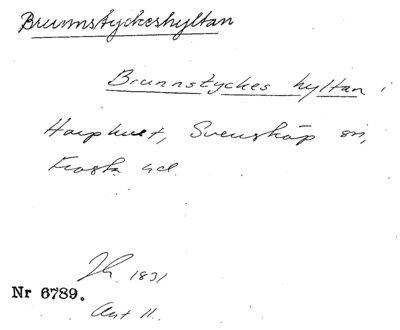 Brunnstyckeshyltan
Brunnstyckes hyltan i
Harphult, Svensköp sn,
Frosta hd.
1831
Nr 6789.
Art 11.